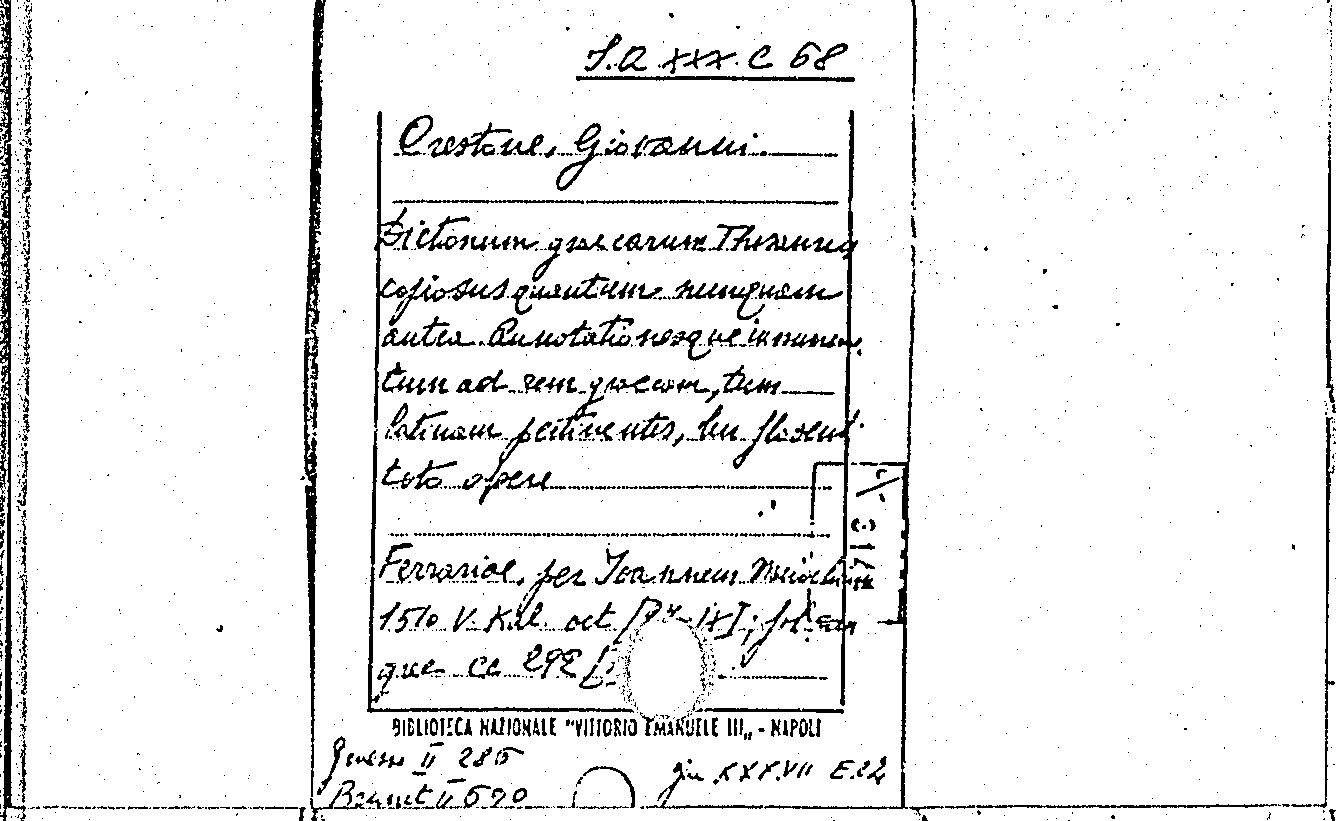 S.Q XXX. C 68
Crestone, Giovanni.
Dictonum graecarum Thesaurus
copiosus quantum numquam
antea. Annotationesque innumerae
tum ad rem graecam, tum
latinam pertinentes, ceu flosculi
toto opere
Ferrariae, per Joannem Maciochium
1510 V. Kal. oct
que cc 292
BIBLIOTECA NAZIONALE "VITTORIO EMANUELE III„ - NAPOLI
II 285
già XXXVII E.22
Brunet II 690